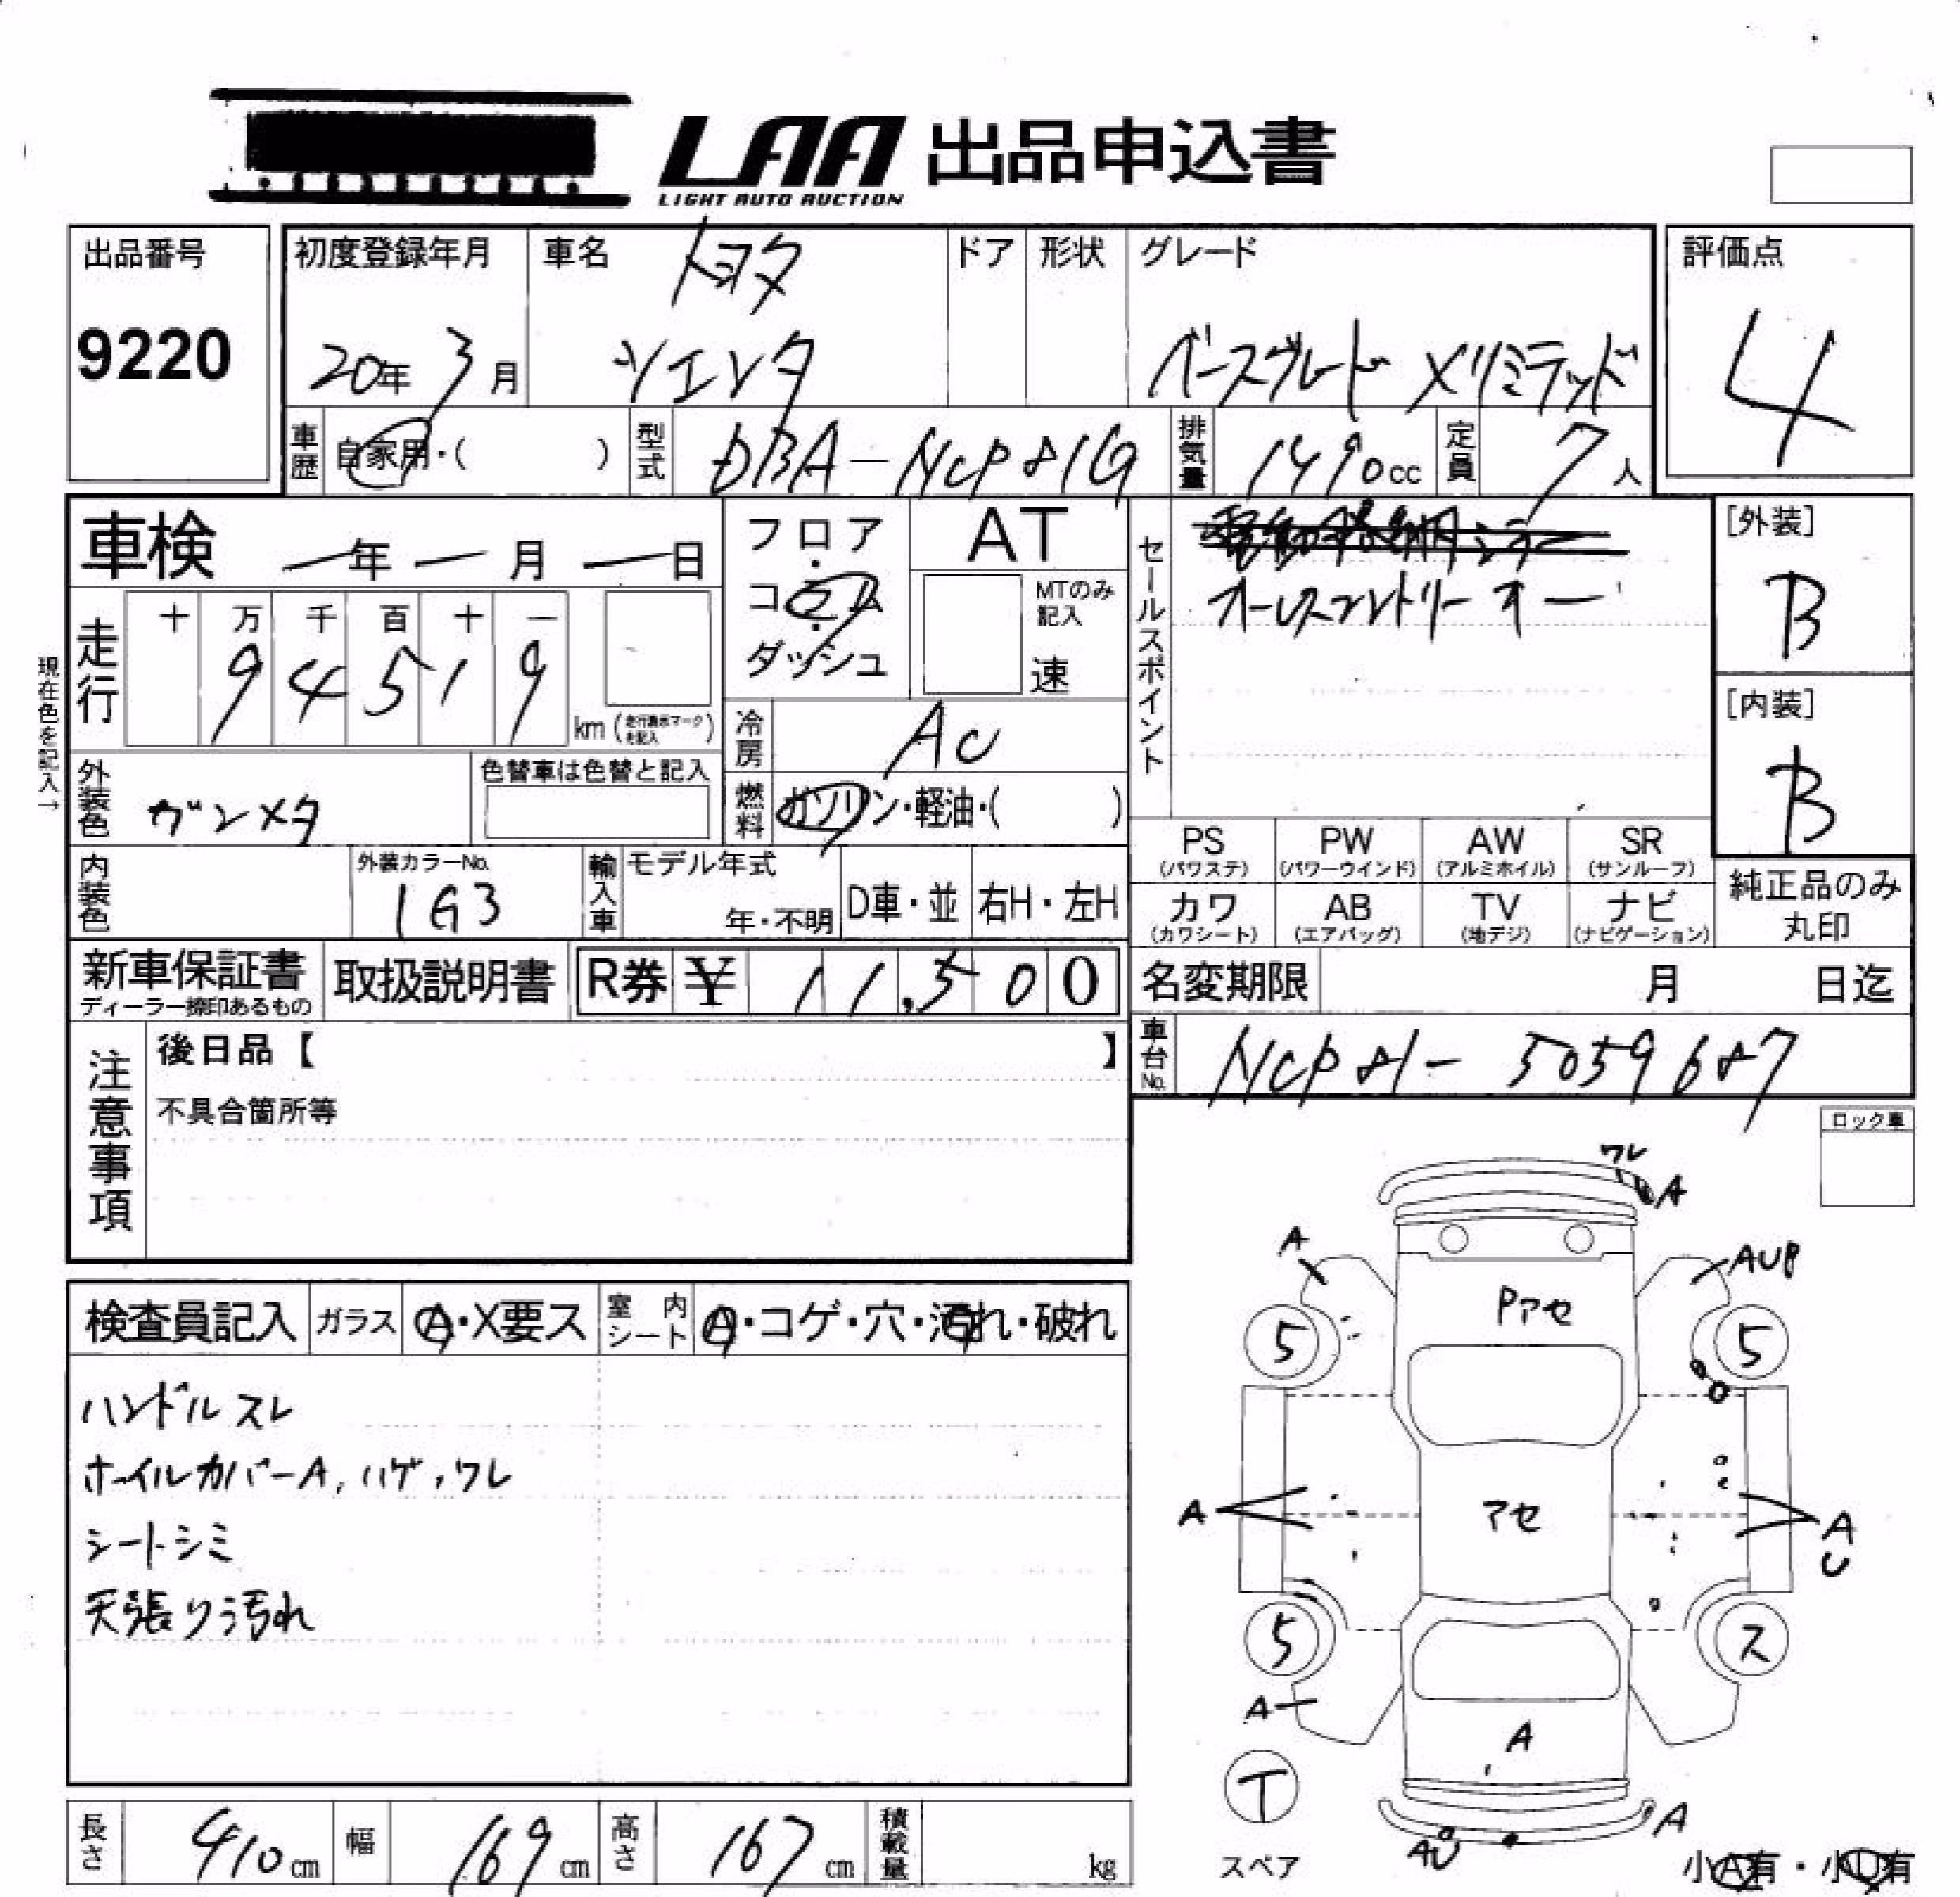 LAA 出品申込書
LIGHT AUTO AUCTION
出品番号
9220
初度登録年月
20年 3月
車名
トヨタ
シエンタ
ドア
形状
グレード
ベースグレード Xリミテッド
評価点
4
車歴
自家用・( )
型式
DBA-NCP81G
排気量
1490cc
定員
7人
車検
ー年ー月ー日
フロア
・
コラム
・
ダッシュ
AT
MTのみ
記入
速
セールスポイント
電動格納ミラー
[外装]
B
[内装]
B
現在色を記入→
走行
十 万 千 百 十 一
9 4 5 1 9
km (走行表示マークを記入)
冷房
AC
外装色
ガンメタ
色替車は色替と記入
燃料
ガソリン・軽油・( )
PS
(パワステ)
PW
(パワーウインド)
AW
(アルミホイル)
SR
(サンルーフ)
カワ
(カワシート)
AB
(エアバッグ)
TV
(地デジ)
ナビ
(ナビゲーション)
純正品のみ
丸印
内装色
外装カラーNo.
1G3
輸入車
モデル年式
年・不明
D車・並
右H・左H
新車保証書
ディーラー捺印あるもの
取扱説明書
R券 ¥ 11,500
名変期限
月 日迄
車台No.
NCP81-5059687
注意事項
後日品【 】
不具合箇所等
ロック車
検査員記入
ガラス
A・X要ス
室内
シート
A・コゲ・穴・汚れ・破れ
ハンドルスレ
ホイルカバーA,ハゲ,ワレ
シートシミ
天張り汚れ
ワレ
A
A
AUP
Pアセ
5
5
アセ
A
A
U
5
ス
A
A
T
スペア
AU
A
小A有・小U有
長さ
410cm
幅
169cm
高さ
167cm
積載量
kg